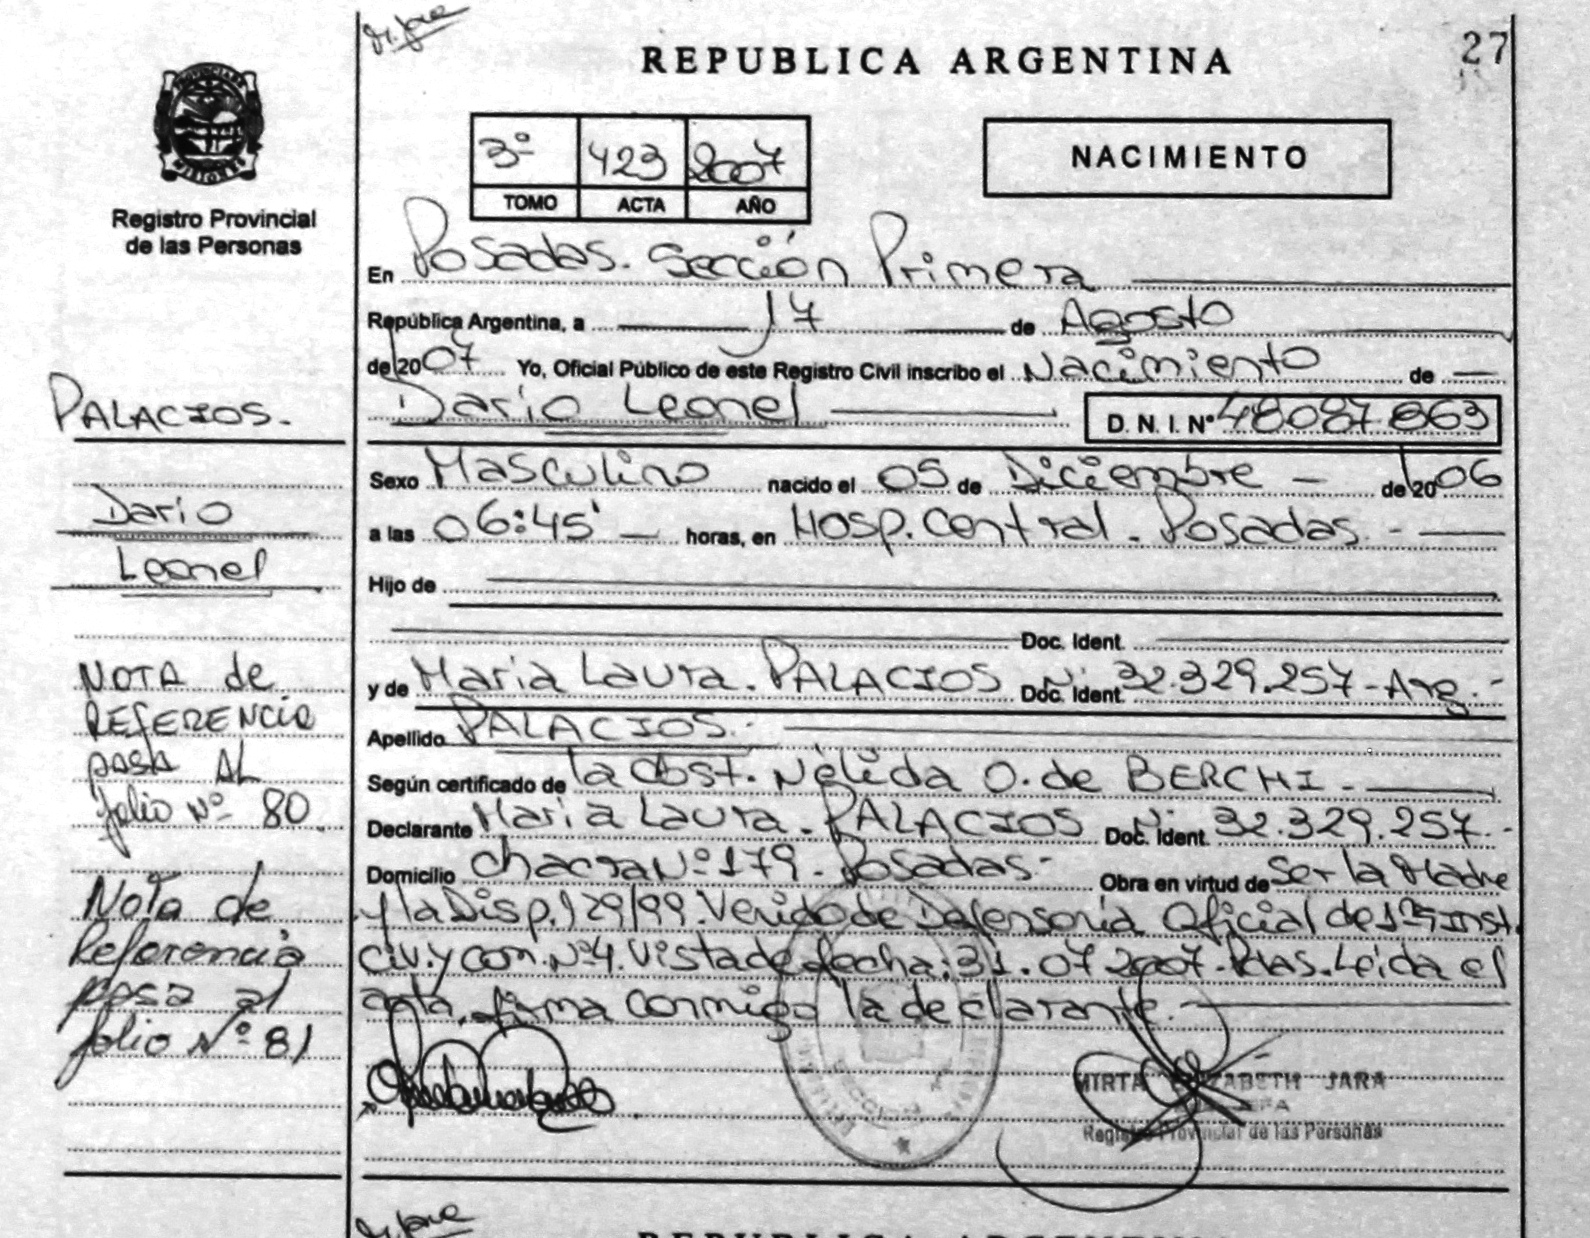 REPUBLICA ARGENTINA
27
3º 423 2007
TOMO ACTA AÑO
NACIMIENTO
MISIONES
Registro Provincial
de las Personas
En Posadas. Sección Primera
República Argentina, a 17 de Agosto
de 2007 Yo, Oficial Público de este Registro Civil inscribo el Nacimiento de
Dario Leonel D. N. I. Nº 48087863
Sexo Masculino nacido el 05 de Diciembre de 2006
a las 06:45' horas, en Hosp. Central. Posadas.-
Hijo de
Doc. Ident.
y de Maria Laura. PALACIOS Doc. Ident. Nº 32.329.257-Arg.-
Apellido PALACIOS.-
Según certificado de la Obst. Nélida O. de BERCHI.
Declarante Maria Laura. PALACIOS Doc. Ident. Nº 32.329.257.-
Domicilio chacra Nº 179. Posadas- Obra en virtud de ser la Madre
y la Disp. 129/99. Venido de Defensoria Oficial de 1ra Inst.
civ. y com. Nº 4. Vista de fecha: 31.07.2007. Leida el
acta, firma conmigo la declarante.
MIRTA ELIZABETH JARA
JEFA
Registro Provincial de las Personas
PALACIOS.
Dario
Leonel
NOTA de
REFERENCIA
pasa AL
folio Nº 80
Nota de
Referencia
pasa al
folio Nº 81
REPUBLICA ARGENTINA